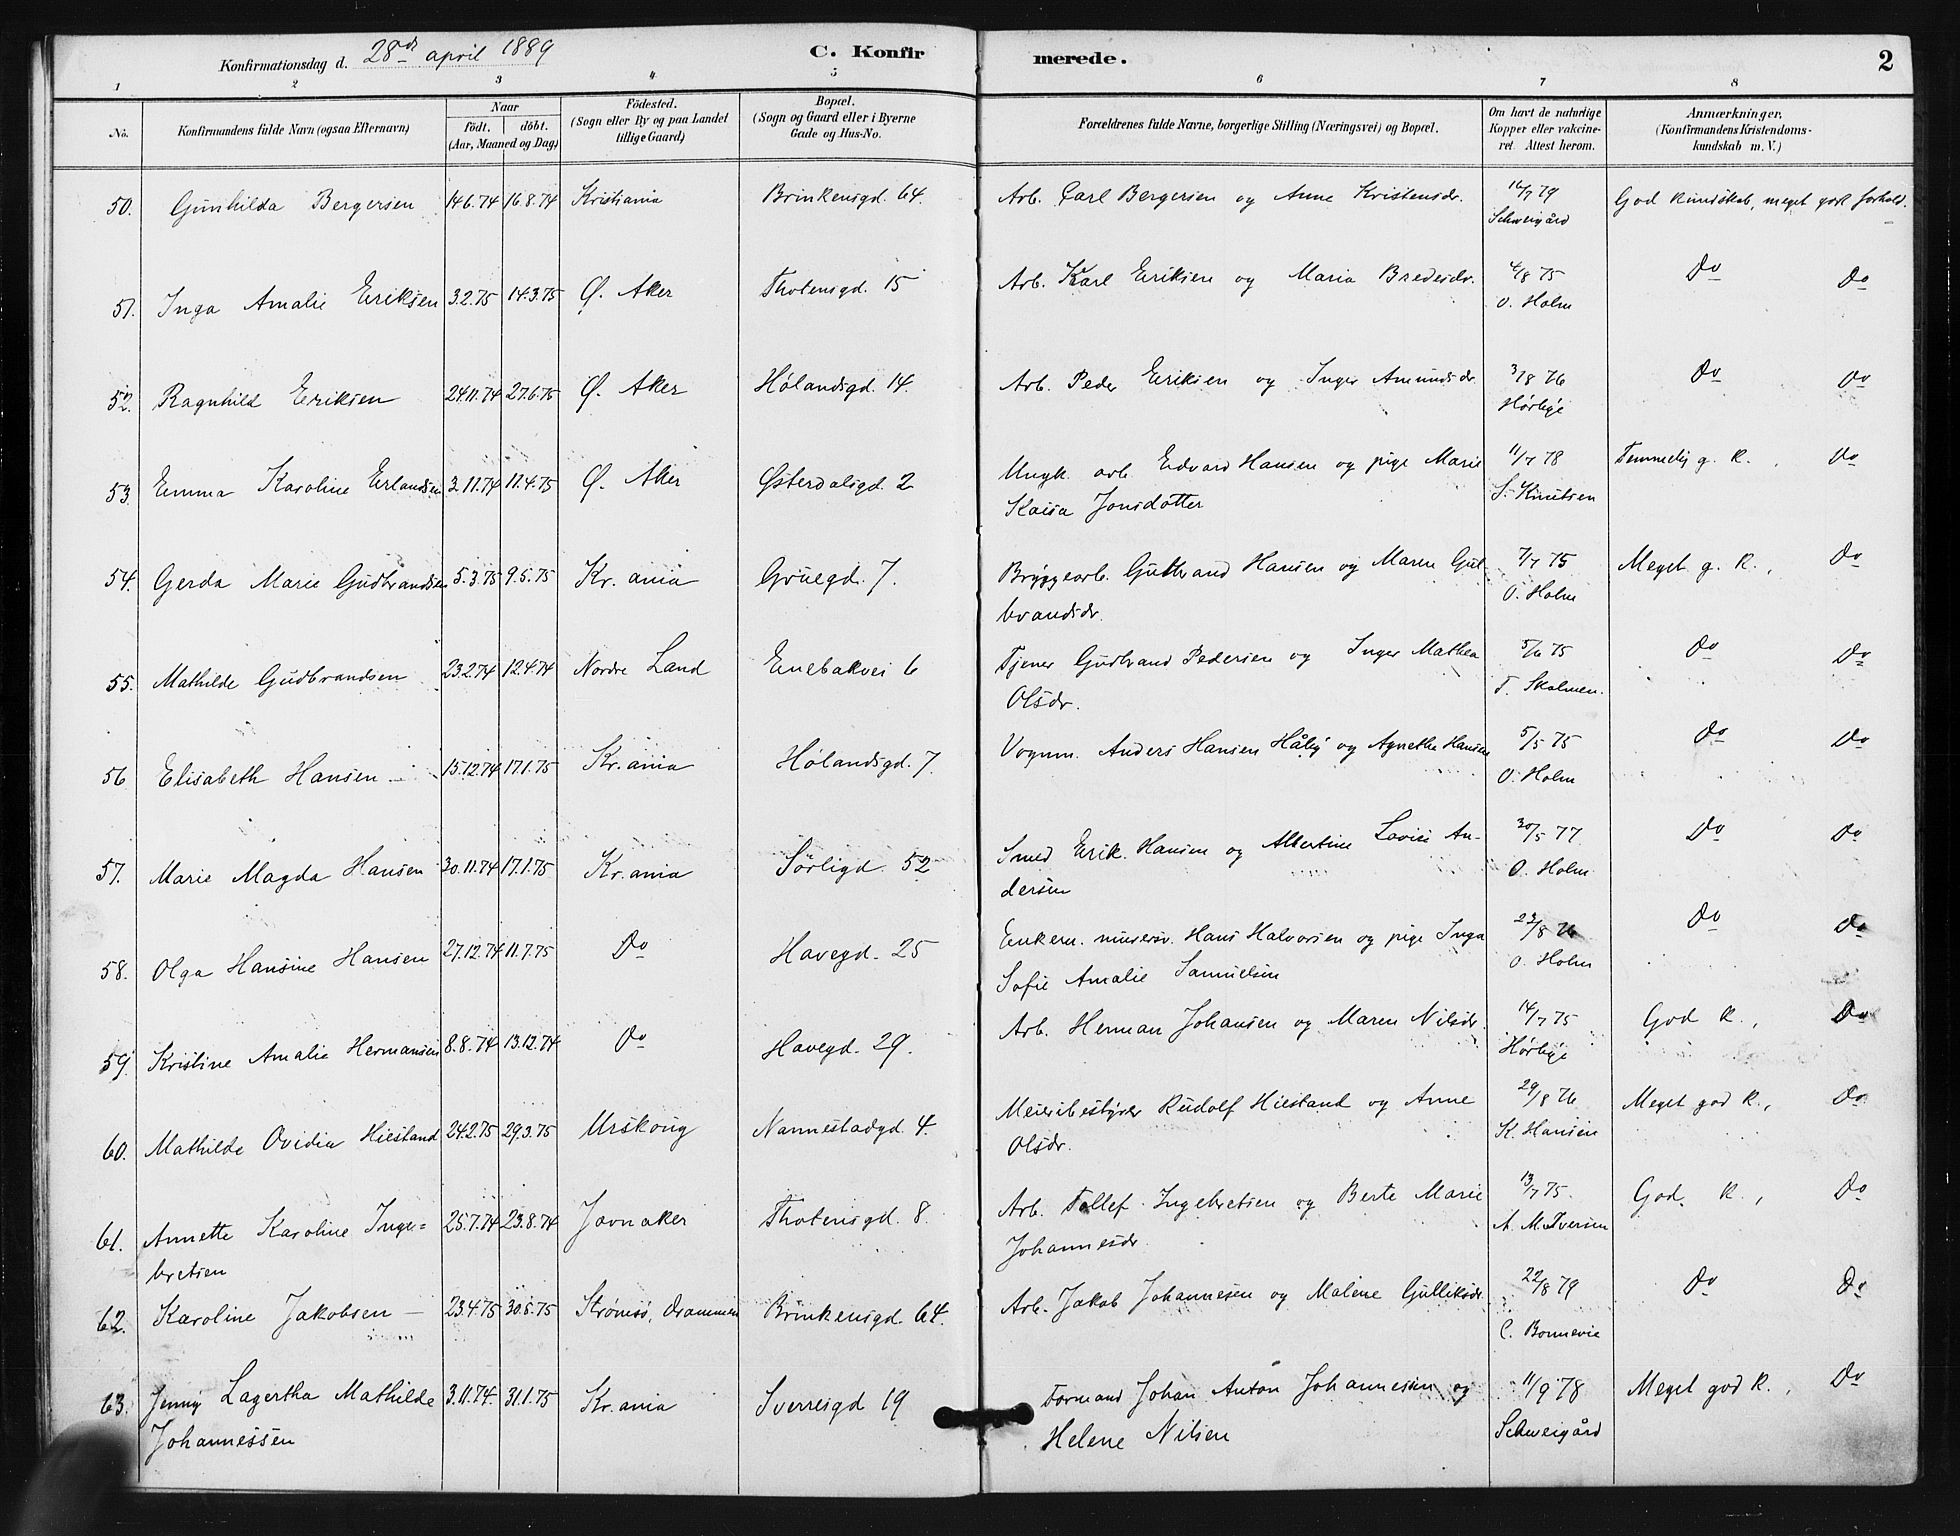 Konfirmationsdag d. 28de april 1889 C. Konfirmerede. 2
1 2 3 4 5 6 7 8
No. Konfirmandens fulde Navn (ogsaa Efternavn) Naar født. døbt. (Aar, Maaned og Dag) Fødested. (Sogn eller By og paa Landet tillige Gaard) Bopæl. (Sogn og Gaard eller i Byerne Gade og Hus-No. Forældrenes fulde Navne, borgerlige Stilling (Næringsvei) og Bopæl. Om havt de naturlige Kopper eller vakcineret. Attest herom. Anmærkninger. (Konfirmandens Kristendomskundskab m. V.)
50. Gunhilda Bergersen 14.6.74 16.8.74 Kristiania Brinkensgd. 64. Arb. Carl Bergersen og Anne Kristensdr. /7 79 God kundskab, meget godt forhold.
Schweigård
51. Inga Amalie Eriksen 3.2.75 14.3.75 Ø. Aker Thotensgd. 15 Arb. Karl Eriksen og Maria Bredesdr. 4/8 75 Do Do
O. Holm
52. Ragnhild Eriksen 24.11.74 27.6.75 Ø. Aker Hølandsgd. 14. Arb. Peder Eriksen og Inger Amundsdr. 3/8 76 Do Do
Hørbye
53. Emma Karoline Erlandsen 3.11.74 11.4.75 Ø. Aker Østerdalsgd. 2 Ungk. arb. Edvard Hansen og pige Marie 11/7 78 Temmelig g. K. , Do
Kaisa Jonsdotter S. Knutsen
54. Gerda Marie Gudbrandsen 5.3.75 9.5.75 Kr.ania Gruegd. 7. Bryggearb. Gutbrand Hansen og Maren Gul 7/7 75 Meget g. K. , Do
brandsdr. O. Holm
55. Mathilde Gudbrandsen 23.2.74 12.4.74 Nordre Land Enebakvei 6 Tjener Gudbrand Pedersen og Inger Mathea 5/6 75 Do Do
Olsdr. T. Skalmen.
56 Elisabeth Hansen 15.12.74 17.1.75 Kr.ania Hølandsgd. 7. Vognm. Anders Hansen Håby og Agnethe Hansen 5/5 75 Do Do
O. Holm
57. Marie Magda Hansen 30.11.74 17.1.75 Kr.ania Sørligd. 52 Smed Erik Hansen og Albertine Lovise An- 30/5 77 Do Do
dersen O. Holm
58. Olga Hansine Hansen 27.12.74 11.7.75 Do Havegd. 25 Enkem. murersv. Hans Halvorsen og pige Inga 23/8 76 Do Do
Sofie Amalie Samuelsen O. Holm
59. Kristine Amalie Hermansen 8.8.74 13.12.74 Do Havegd. 29. Arb. Herman Johansen og Maren Nilsdr. 14/7 75 God K. , Do
Hørbye
60. Mathilde Ovidia Hiestand 24.2.75 29.3.75 Urskoug Nannestadgd. 4. Meieribestyrer Rudolf Hiestand og Anne 29/8 76 Meget god K. , Do
Olsdr. K. Hansen
61. Annette Karoline Inge= 25.7.74 23.8.74 Jevnaker Thotensgd. 8. Arb. Tollef Ingebretsen og Berte Marie 13/7 75. God K. , Do
bretsen Johannesdr. A. M. Iversen
62. Karoline Jakobsen — 23.4.75 30.5.75 Strømsø, Drammen Brinkensgd. 64. Arb. Jakob Johannesen og Malene Gulliksdr. 22/8 79 Do Do
C. Bonnevie
63. Jenny Lagertha Mathilde 3.11.74. 31.1.75 Kr.ania Sverresgd 19 Formand Johan Anton Johannesen og 11/9 78 Meget god K. , Do
Johannessen Helene Nilsen Schweigård